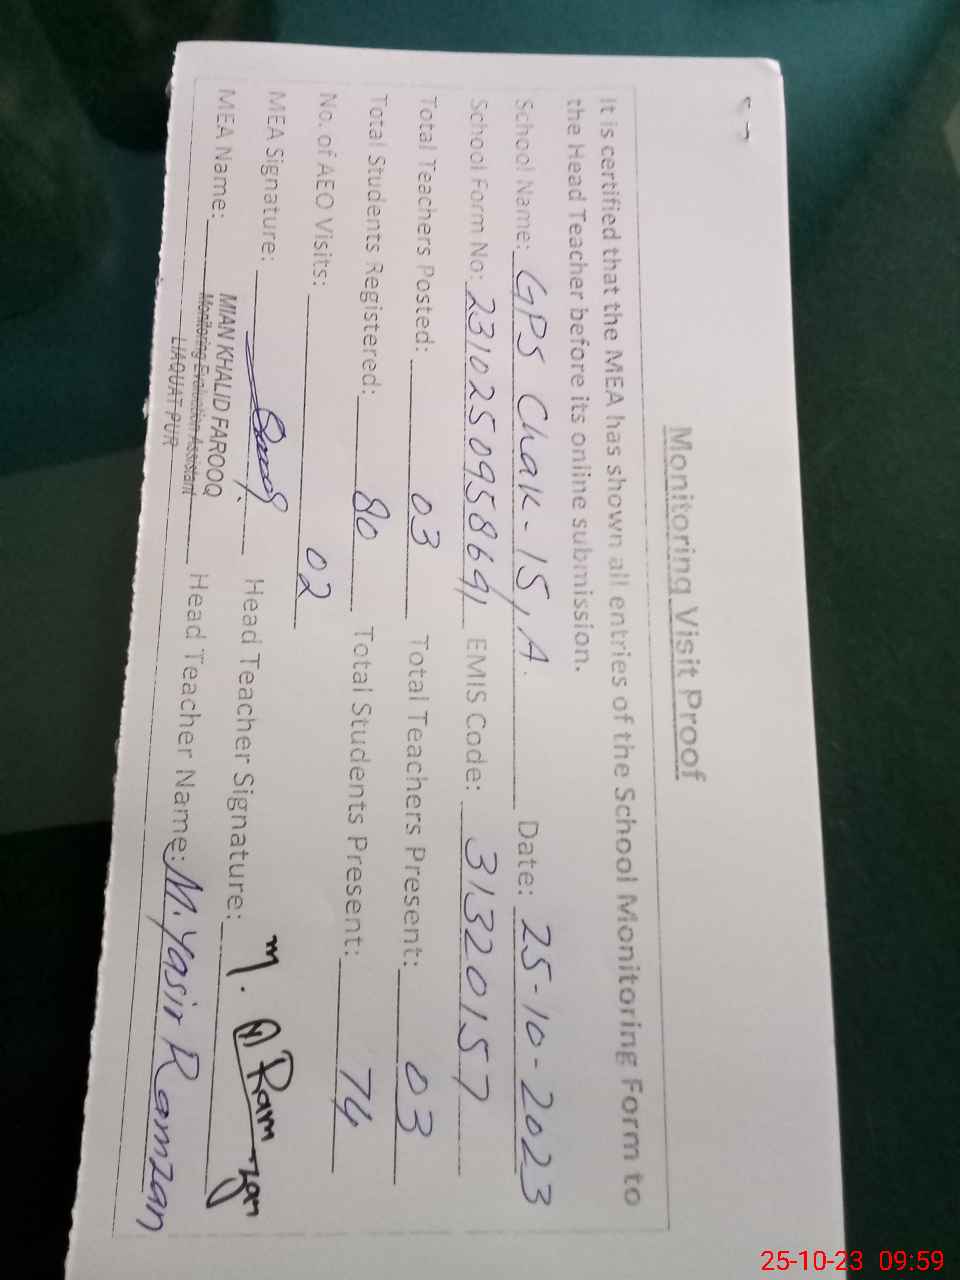 Monitoring Visit Proof
It is certified that the MEA has shown all entries of the School Monitoring Form to
the Head Teacher before its online submission.
School Name: GPS Chak-15,A. Date: 25-10-2023
School Form No: 23102509586 EMIS Code: 31320157
Total Teachers Posted: 03 Total Teachers Present: 03
Total Students Registered: 80 Total Students Present: 74
No. of AEO Visits: 02
MEA Signature: Head Teacher Signature: M. Ramzan
MEA Name: MIAN KHALID FAROOQ Head Teacher Name: M. Yasir Ramzan
Monitoring Evaluation Assistant
LIAQUAT PUR
25-10-23 09:59